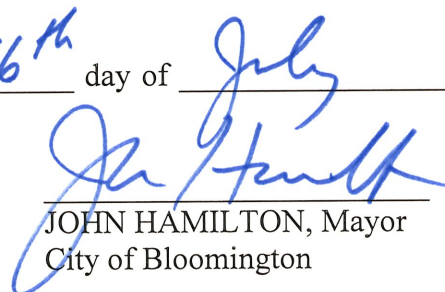 6th day of July
John Hamilton
JOHN HAMILTON, Mayor
City of Bloomington